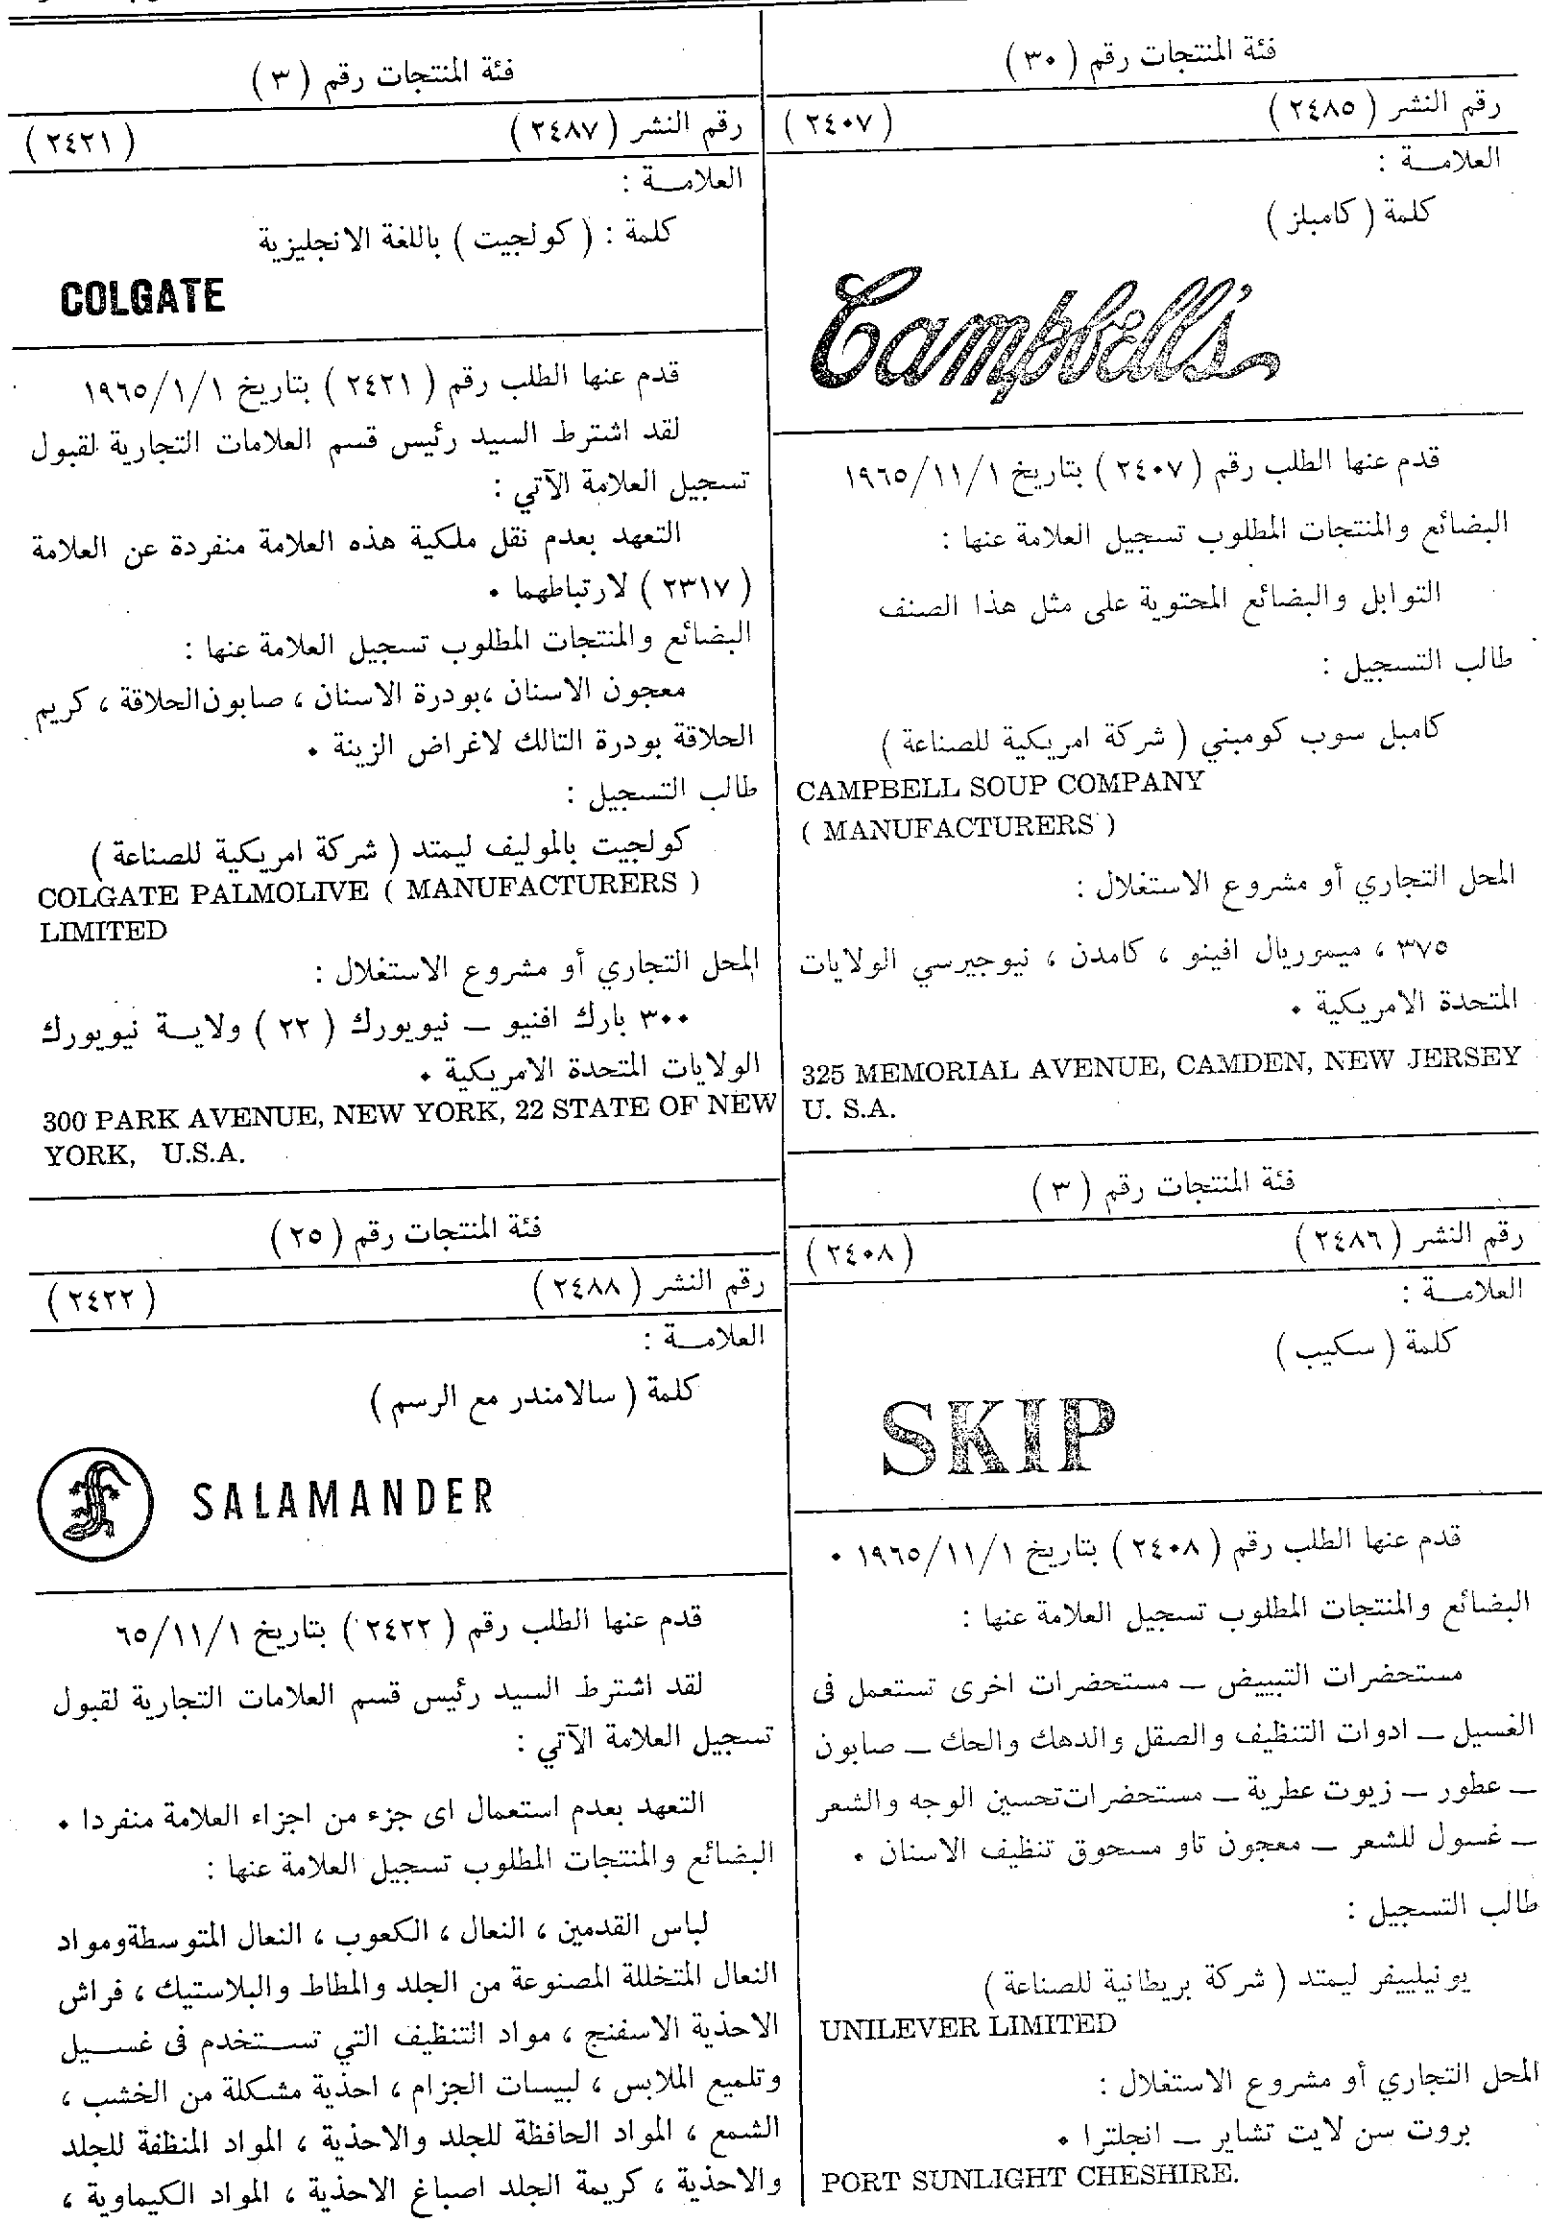 فئة المنتجات رقم ( ٣٠ )
رقم النشر ( ٢٤٨٥ ) ( ٢٤٠٧ )
العلامـــة :
كلمة ( كامبلز )
Campbell's
قدم عنها الطلب رقم ( ٢٤٠٧ ) بتاريخ ١/‏١١/‏١٩٦٥
البضائع والمنتجات المطلوب تسجيل العلامة عنها :
التوابل والبضائع المحتوية على مثل هذا الصنف
طالب التسجيل :
كامبل سوب كومبني ( شركة امريكية للصناعة )
CAMPBELL SOUP COMPANY
( MANUFACTURERS )
المحل التجاري أو مشروع الاستغلال :
٣٧٥ ، ميموريال افينو ، كامدن ، نيوجيرسي الولايات
المتحدة الامريكية ٠
325 MEMORIAL AVENUE, CAMDEN, NEW JERSEY
U. S.A.
فئة المنتجات رقم ( ٣ )
رقم النشر ( ٢٤٨٦ ) ( ٢٤٠٨ )
العلامـــة :
كلمة ( سكيب )
SKIP
قدم عنها الطلب رقم ( ٢٤٠٨ ) بتاريخ ١/‏١١/‏١٩٦٥ ٠
البضائع والمنتجات المطلوب تسجيل العلامة عنها :
مستحضرات التبييض ــ مستحضرات اخرى تستعمل فى
الغسيل ــ ادوات التنظيف والصقل والدهك والحك ــ صابون
ــ عطور ــ زيوت عطرية ــ مستحضرات تحسين الوجه والشعر
ــ غسول للشعر ــ معجون تاو مسحوق تنظيف الاسنان ٠
طالب التسجيل :
يونيلييفر ليمتد ( شركة بريطانية للصناعة )
UNILEVER LIMITED
المحل التجاري أو مشروع الاستغلال :
بروت سن لايت تشاير ــ انجلترا ٠
PORT SUNLIGHT CHESHIRE.
فئة المنتجات رقم ( ٣ )
رقم النشر ( ٢٤٨٧ ) ( ٢٤٢١ )
العلامـــة :
كلمة : ( كولجيت ) باللغة الانجليزية
COLGATE
قدم عنها الطلب رقم ( ٢٤٢١ ) بتاريخ ١/‏١/‏١٩٦٥
لقد اشترط السيد رئيس قسم العلامات التجارية لقبول
تسجيل العلامة الآتي :
التعهد بعدم نقل ملكية هذه العلامة منفردة عن العلامة
( ٢٣١٧ ) لارتباطهما ٠
البضائع والمنتجات المطلوب تسجيل العلامة عنها :
معجون الاسنان ،بودرة الاسنان ، صابون الحلاقة ، كريم
الحلاقة بودرة التالك لاغراض الزينة ٠
طالب التسجيل :
كولجيت بالموليف ليمتد ( شركة امريكية للصناعة )
COLGATE PALMOLIVE ( MANUFACTURERS )
LIMITED
المحل التجاري أو مشروع الاستغلال :
٣٠٠ بارك افنيو ــ نيويورك ( ٢٢ ) ولايـــة نيويورك
الولايات المتحدة الامريكية ٠
300 PARK AVENUE, NEW YORK, 22 STATE OF NEW
YORK, U.S.A.
فئة المنتجات رقم ( ٢٥ )
رقم النشر ( ٢٤٨٨ ) ( ٢٤٢٢ )
العلامـــة :
كلمة ( سالامندر مع الرسم )
SALAMANDER
قدم عنها الطلب رقم ( ٢٤٢٢ ) بتاريخ ١/‏١١/‏٦٥
لقد اشترط السيد رئيس قسم العلامات التجارية لقبول
تسجيل العلامة الآتي :
التعهد بعدم استعمال اى جزء من اجزاء العلامة منفردا ٠
البضائع والمنتجات المطلوب تسجيل العلامة عنها :
لباس القدمين ، النعال ، الكعوب ، النعال المتوسطة ومواد
النعال المتخللة المصنوعة من الجلد والمطاط والبلاستيك ، فراش
الاحذية الاسفنج ، مواد التنظيف التي تستخدم فى غسيل
وتلميع الملابس ، لبيسات الجزام ، احذية مشكلة من الخشب ،
الشمع ، المواد الحافظة للجلد والاحذية ، المواد المنظفة للجلد
والاحذية ، كريمة الجلد اصباغ الاحذية ، المواد الكيماوية ،